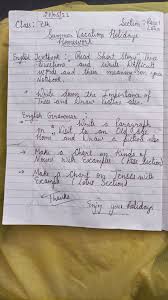 Class: 7th
Section: Rose / Lotus
Summer Vacation Holidays
Homework
English Textbook: Read Short Story Two
Questions and Write Difficult
Words and their meaning on your
Notebook
Write down the Importance of
Trees and draw
English Grammar: Write a Paragraph
on Visit to an Old Age
Home and Draw a picture also
Make a Chart on Kinds of
Nouns with Example (Rose Section)
Make a Chart on Tenses with
Example (Lotus Section)
Thanks
Enjoy your holidays